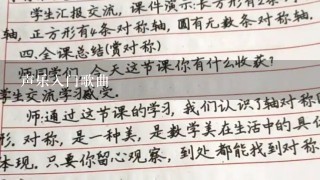 学生汇报交流，课件演示：长方形有2条
轴，正方形有4条对称轴，圆有无数条对称轴。
四.全课总结(赏对称)
师：同学们，今天这节课你有什么收获？
声乐入门歌曲
学生交流学习感受。
师：通过这节课的学习，我们认识了轴对称
形.对称，是一种美，是数学美在生活中的具
体现.只要你留心观察，到处都能找到对称